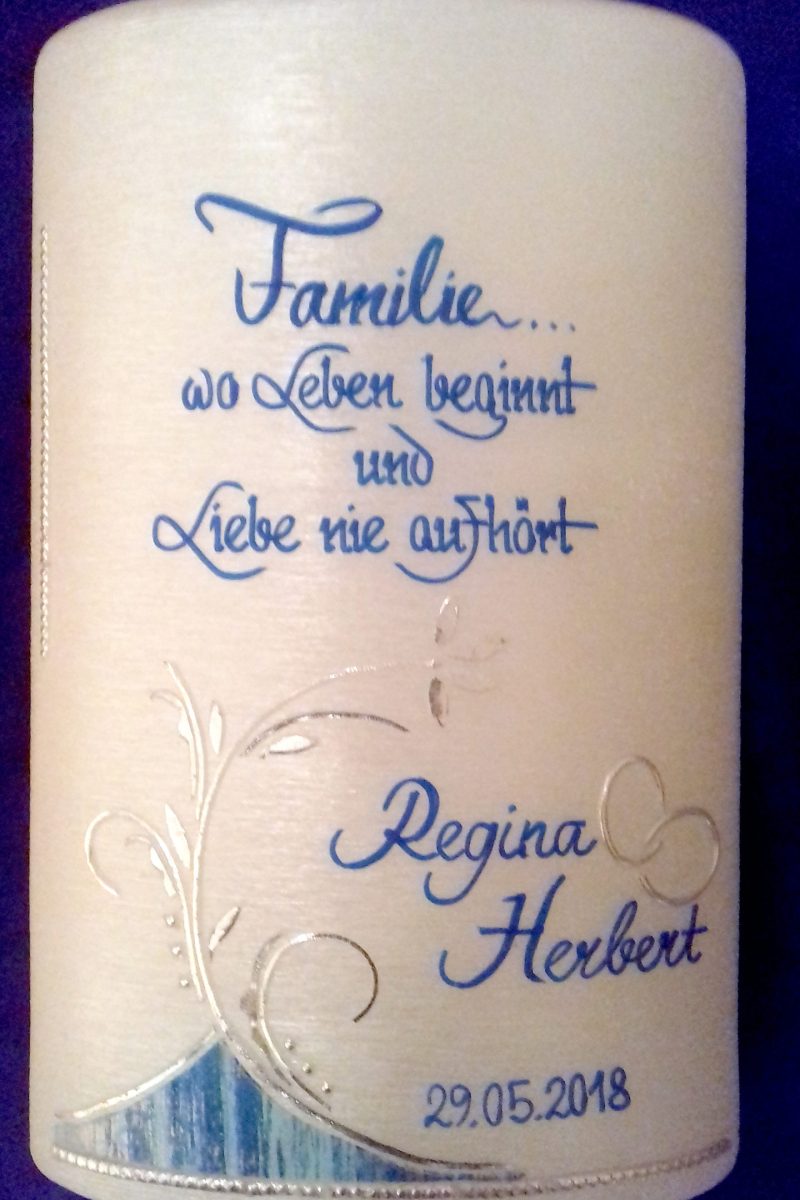 Familie...
wo Leben beginnt
und
Liebe nie aufhört
Regina
Herbert
29.05.2018